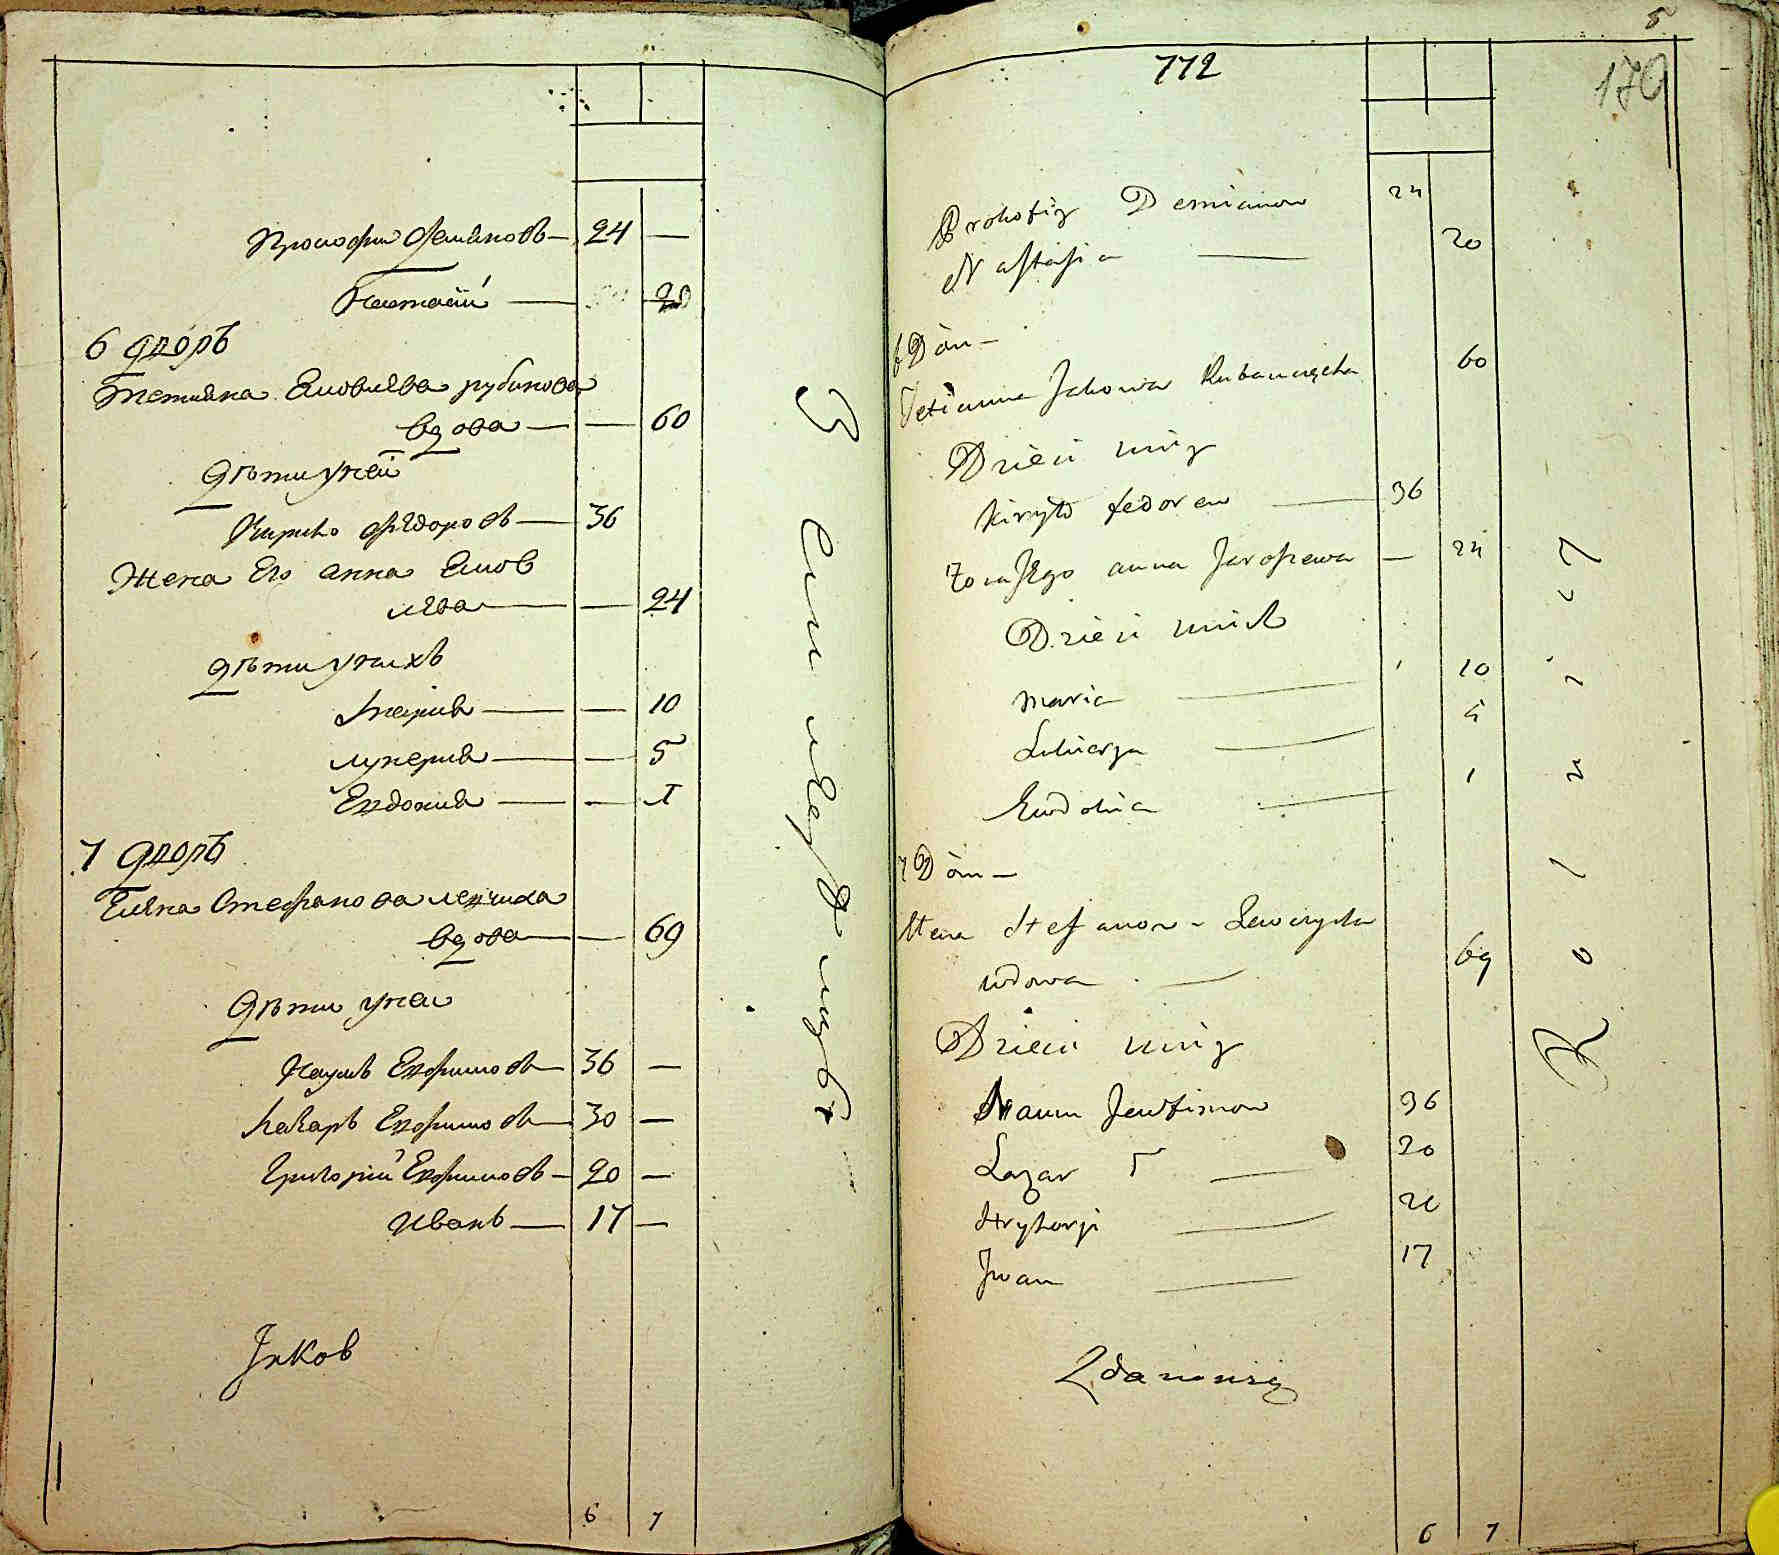 Прокофии Демяновъ — 24 —
Настасiи — 20
6 Дворъ
Тетияна Яковлева рубанова
вдова — — 60
Дѣти у неи
Кирило Федоровъ — 36
Жена Его анна Яков
лева — — 24
Дѣти у нихъ
Мария — — 10
лукерия — — 5
Евдокия — — 1
7 Дворъ
Стефанова левчиха
вдова — — 69
Дѣти у неи
Наумъ Евфимовъ — 36 —
Лазарь Евфимовъ — 30 —
Григорiи Евфимовъ — 20 —
Иванъ — 17 —
Яков
6 7
5
772
170
Prokofiy Demianow 24
Nastasia — 20
6 Dom —
Tetianna Jakowa Rubanczycha 60
Dzieci u niey
Kiryło fedorow — 36
Zona Jego anna — 24
Dzieci u nich
Maria — 10
Lukierya — 5
Ewdokia — 1
7 Dom —
Stefanow Lewczycha
wdowa — 69
Dzieci u niey
Naum Jewfimow 36
Lazar — 30
Hryhorji — 20
Jwan — 17
6 7